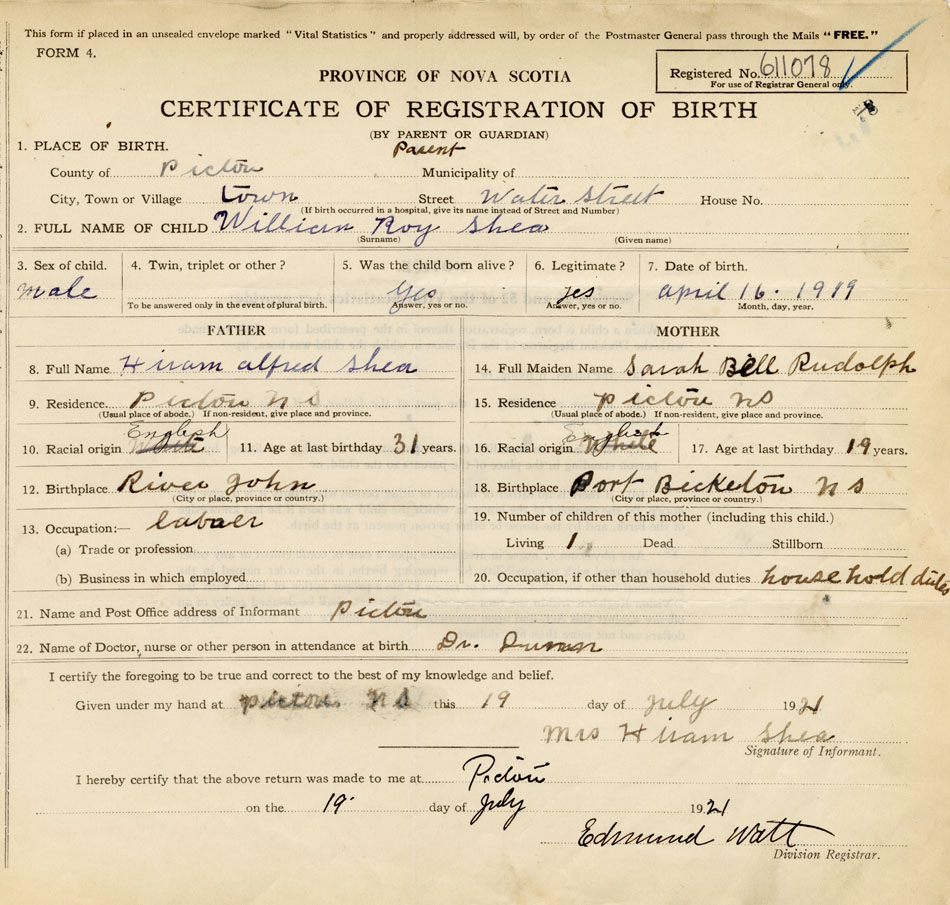 This form if placed in an unsealed envelope marked "Vital Statistics" and properly addressed will, by order of the Postmaster General pass through the Mails "FREE."
FORM 4.
Registered No. 611078
For use of Registrar General only.
PROVINCE OF NOVA SCOTIA
CERTIFICATE OF REGISTRATION OF BIRTH
(BY PARENT OR GUARDIAN)
1. PLACE OF BIRTH. Parent
County of Pictou Municipality of
City, Town or Village town Street Water Street House No.
(If birth occurred in a hospital, give its name instead of Street and Number)
2. FULL NAME OF CHILD William Roy Shea
(Surname) (Given name)
3. Sex of child. 4. Twin, triplet or other? 5. Was the child born alive? 6. Legitimate? 7. Date of birth.
male Yes yes april 16. 1919
To be answered only in the event of plural birth. Answer, yes or no. Answer, yes or no. Month, day, year.
FATHER MOTHER
8. Full Name Hiram alfred Shea 14. Full Maiden Name Sarah Bell Rudolph
9. Residence. Pictou N S 15. Residence pictou NS
(Usual place of abode.) If non-resident, give place and province. (Usual place of abode.) If non-resident, give place and province.
English English
10. Racial origin White 11. Age at last birthday 31 years. 16. Racial origin White 17. Age at last birthday 19 years.
12. Birthplace River John 18. Birthplace Port Bicketon N S
(City or place, province or country.) (City or place, province or country.)
13. Occupation:— labaer 19. Number of children of this mother (including this child.)
(a) Trade or profession Living 1 Dead Stillborn
(b) Business in which employed 20. Occupation, if other than household duties. household duties
21. Name and Post Office address of Informant Pictou
22. Name of Doctor, nurse or other person in attendance at birth Dr.
I certify the foregoing to be true and correct to the best of my knowledge and belief.
Given under my hand at pictou N S this 19 day of July 1921
Mrs Hiram Shea
Signature of Informant.
I hereby certify that the above return was made to me at Pictou
on the 19 day of July 1921
Edmund Watt
Division Registrar.